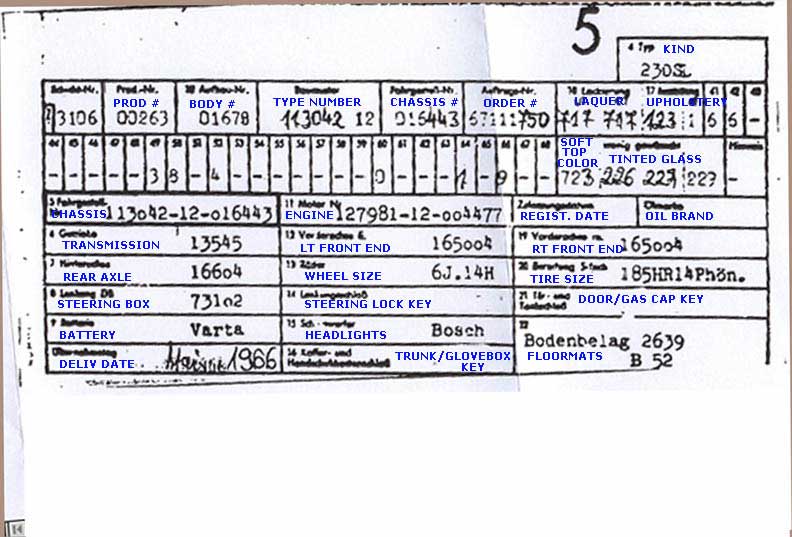 5
4 Typ KIND
230SL
Prod.-Nr. 20 Aufbau-Nr. Baumuster Fahrgestell-Nr. Auftrags-Nr. 16 Lackierung 17 41 42 43
PROD # BODY # TYPE NUMBER CHASSIS # ORDER # LAQUER UPHOLSTERY
3106 00263 01678 113042 12 016443 717 717 123 1 6 6 -
44 45 46 47 48 49 50 51 52 53 54 55 56 57 58 59 60 61 62 63 64 65 66 67 68 SOFT TOP COLOR TINTED GLASS Hinweis
- - - - - 3 8 - 4 - - - - - 0 - - - 1 - 9 - - 723 226 227 227 -
CHASSIS 113042-12-016443 11 Motor Nr. ENGINE 127981-12-004477 Zulassungsdatum REGIST. DATE Ölmarke OIL BRAND
6 Getriebe TRANSMISSION 13545 12 Vorderachse l. LT FRONT END 165004 19 Vorderachse r. RT FRONT END 165004
7 Hinterachse REAR AXLE 16604 13 Räder WHEEL SIZE 6J.14H 20 Bereifung 5-fach TIRE SIZE 185HR14Phön.
8 Lenkung DB STEERING BOX 73102 14 Lenkungsschloß STEERING LOCK KEY 21 Tür- und Tankschloß DOOR/GAS CAP KEY
9 Batterie BATTERY Varta 15 HEADLIGHTS Bosch 22 Bodenbelag 2639
DELIV DATE 1966 16 Koffer- und Handschuhkastenschloß TRUNK/GLOVEBOX KEY FLOORMATS B 52